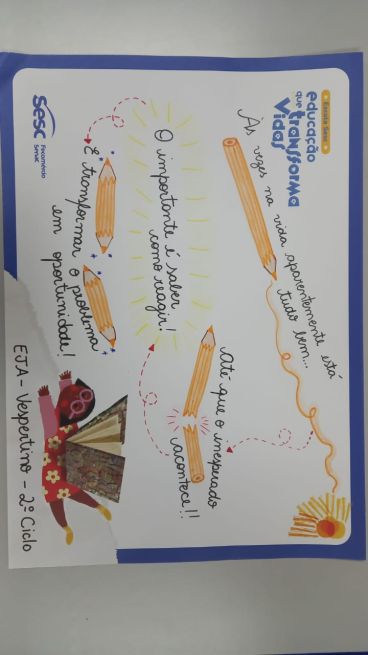 Escola Sesc
educação
que transforma
Vidas
Às vezes na vida aparentemente está
tudo bem...
Até que o inesperado
acontece!!
O importante é saber
como reagir!
É transformar o problema
em oportunidade!
Sesc
Fecomércio
Senac
EJA - Vespertino - 2º Ciclo